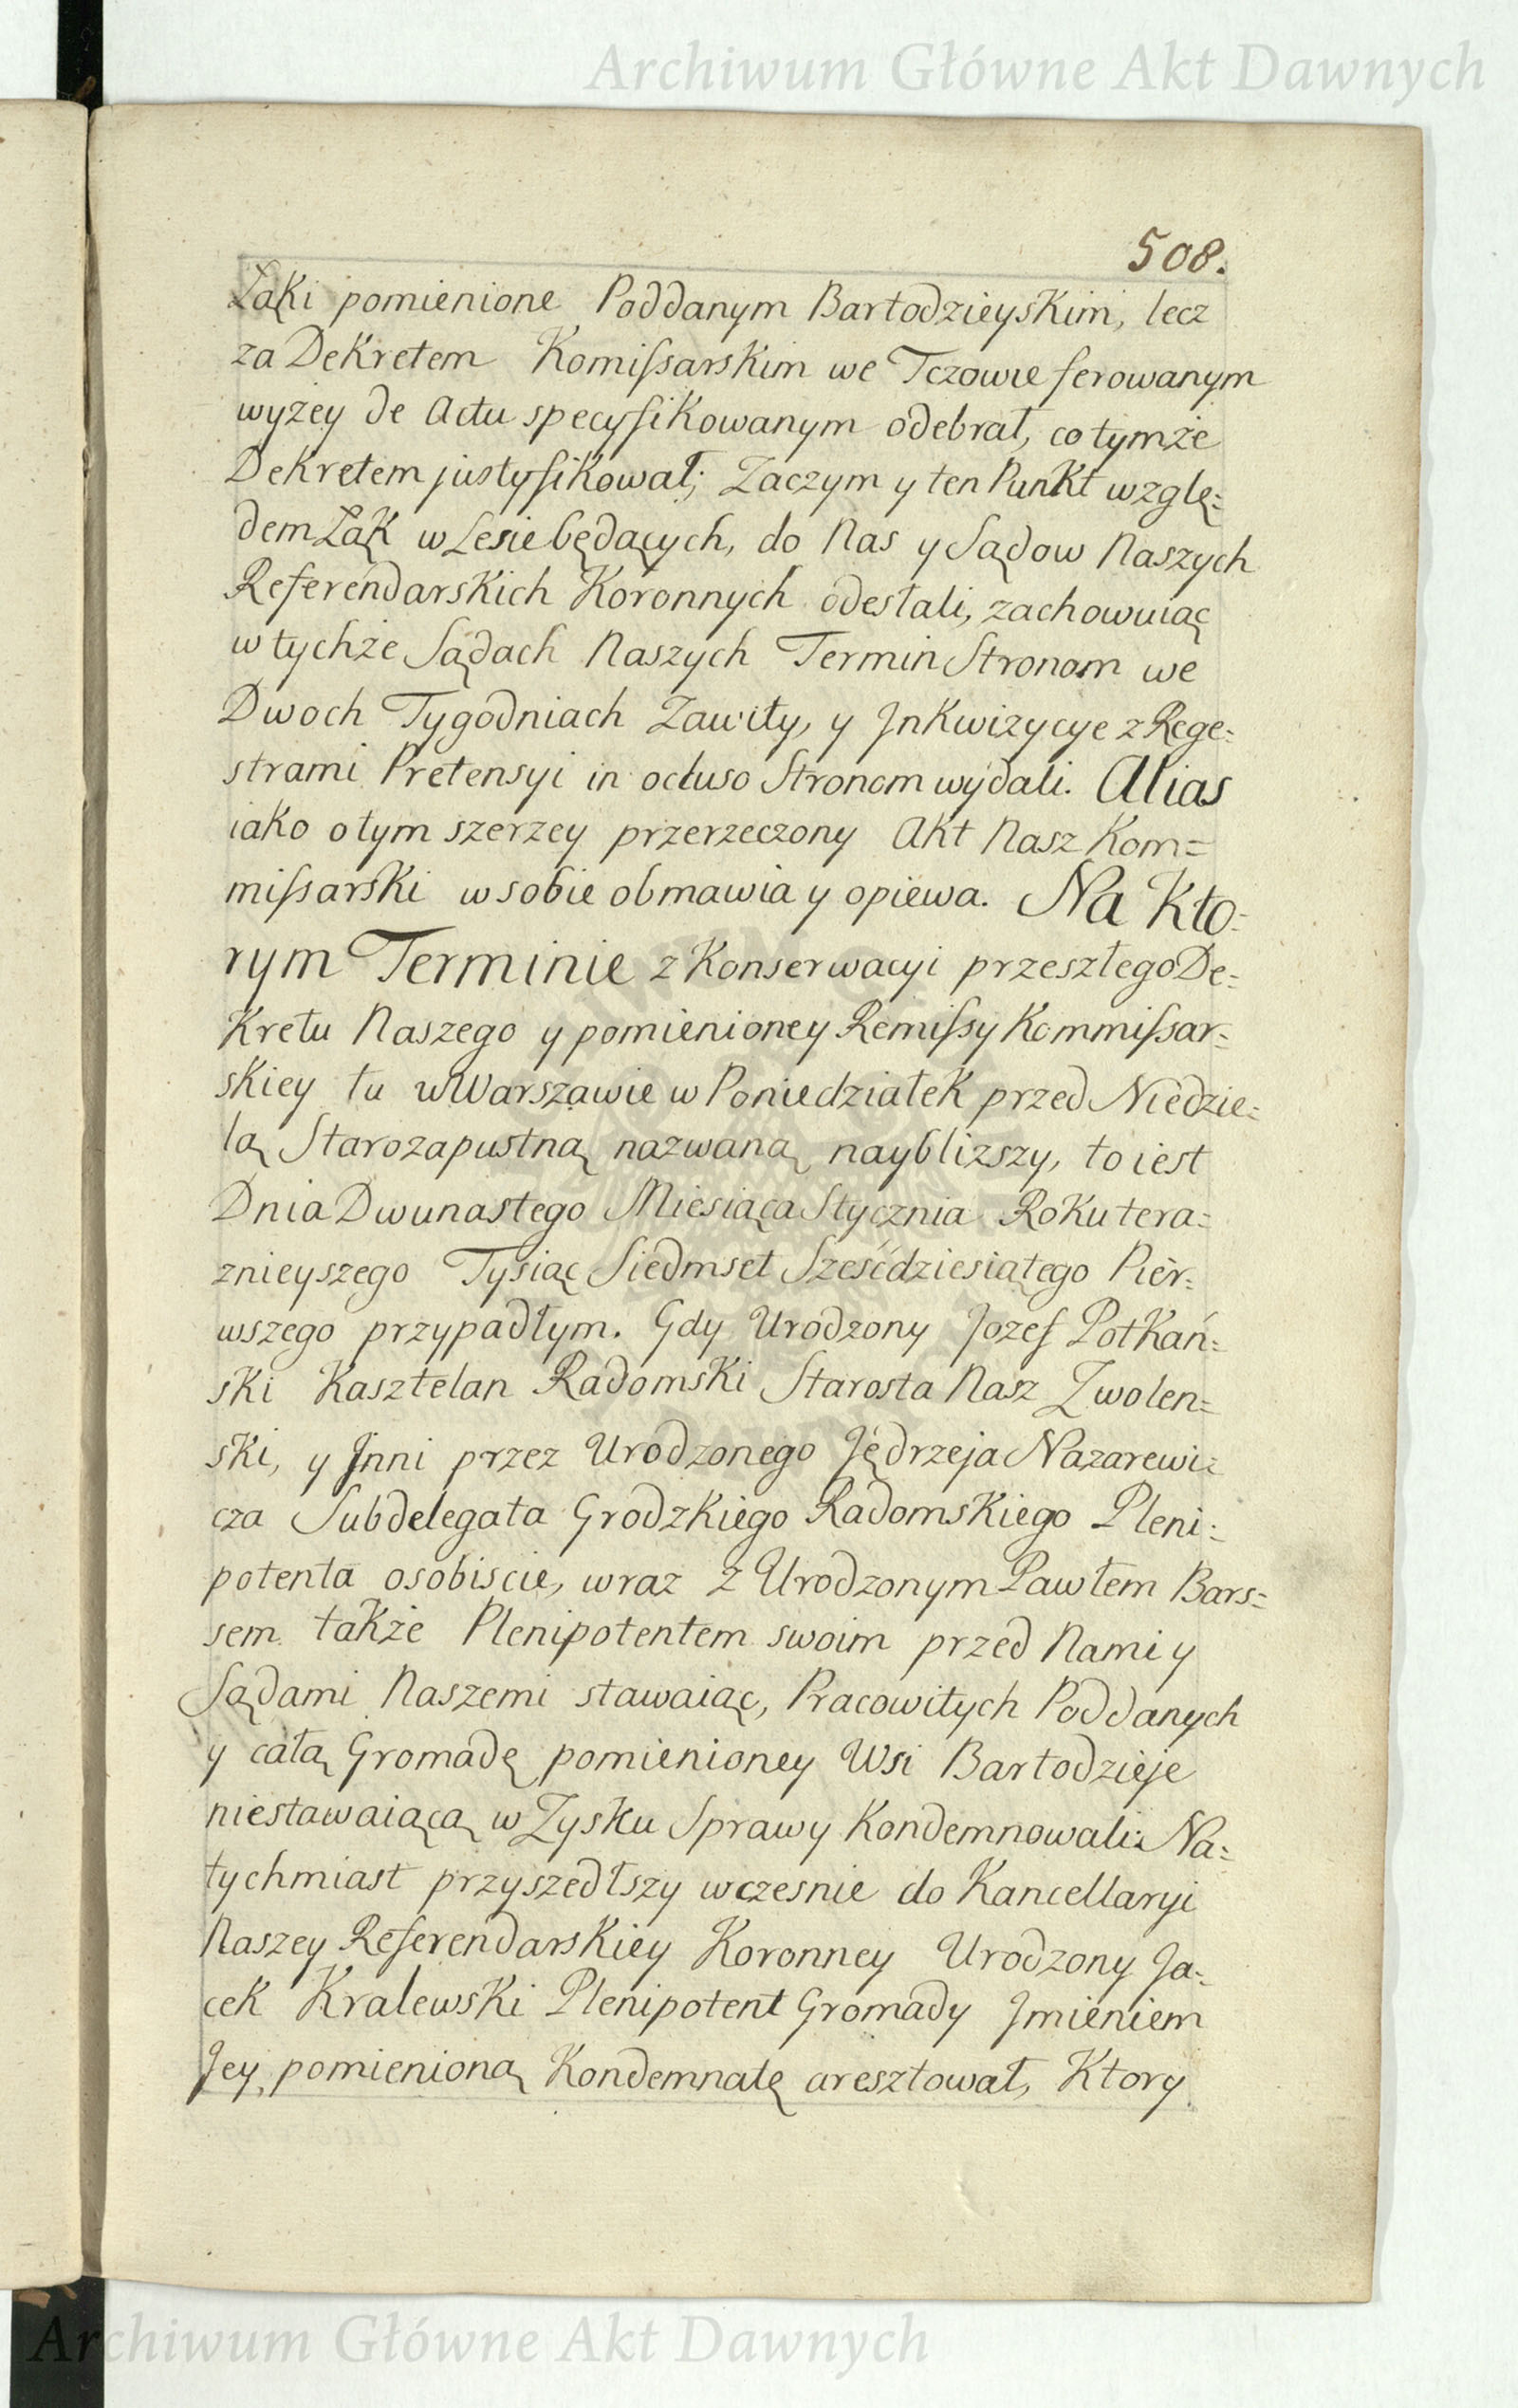 Archiwum Główne Akt Dawnych
508.
Łąki pomienione Poddanym Bartodzieyskim, lecz
za Dekretem Komiſsarskim we Tczowie ferowanym
wyżey de Actu specyfikowanym odebrał, co tymże
Dekretem justyfikował; Zaczym y ten Punkt wzglę:
dem Łąk w Lesie będących, do Nas y Sądow Naszych
Referendarskich Koronnych odesłali, zachowuiąc
w tychże Sądach Naszych Termin Stronom we
Dwoch Tygodniach Zawity, y Inkwizycye z Rege:
strami Pretensyi in ocluso Stronom wydali. Alias
iako o tym szerzey przerzeczony Akt Nasz Kom=
miſsarski w sobie obmawia y opiewa. Na Kto:
rym Terminie z Konserwacyi przeszłego De:
kretu Naszego y pomienioney Remiſsy Kommiſsar:
skiey tu w Warszawie w Poniedziałek przed Niedzie:
lą Starozapustną nazwaną naybliższy, to iest
Dnia Dwunastego Miesiąca Stycznia Roku tera:
znieyszego Tysiąc Siedmset Sześćdziesiątego Pier:
wszego przypadłym. Gdy Urodzony Jozef Potkań:
ski Kasztelan Radomski Starosta Nasz Zwolen:
ski, y Jnni przez Urodzonego Jędrzeja Nazarewi:
cza Subdelegata Grodzkiego Radomskiego Pleni:
potenta osobiscie, wraz z Urodzonym Pawłem Bars:
sem także Plenipotentem swoim przed Nami y
Sądami Naszemi stawaiąc, Pracowitych Poddanych
y całą Gromadę pomienioney Wsi Bartodzieje
niestawaiącą w Zysku Sprawy Kondemnowali: Na:
tychmiast przyszedłszy wczesnie do Kancellaryi
Naszey Referendarskiey Koronney Urodzony Ja:
cek Kralewski Plenipotent Gromady Jmieniem
Jey pomienioną Kondemnatę aresztował, Ktory
Archiwum Główne Akt Dawnych